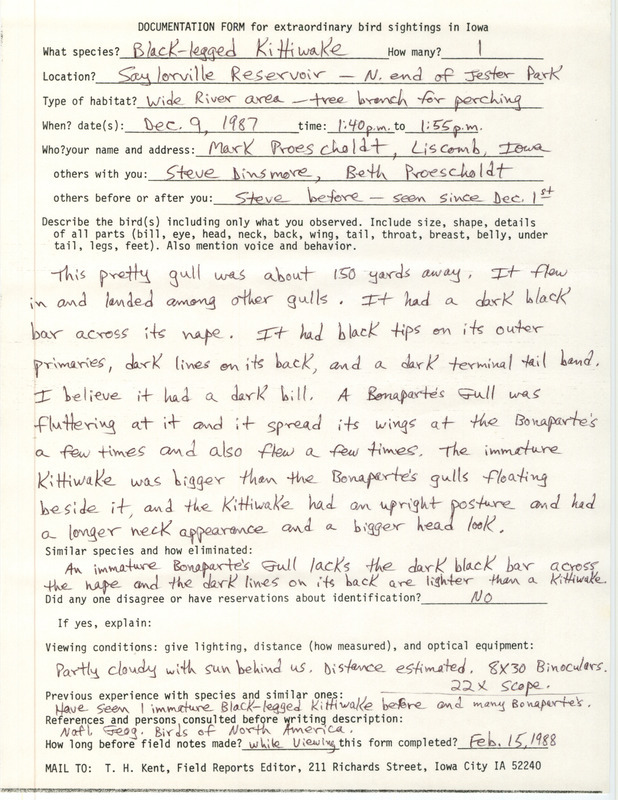 DOCUMENTATION FORM for extraordinary bird sightings in Iowa
What species? Black-legged Kittiwake How many? 1
Location? Saylorville Reservoir — N. end of Jester Park
Type of habitat? Wide River area — tree branch for perching
When? date(s): Dec. 9, 1987 time: 1:40 p.m. to 1:55 p.m.
Who?your name and address: Mark Proescholdt, Liscomb, Iowa
others with you: Steve Dinsmore, Beth Proescholdt
others before or after you: Steve before — seen since Dec. 1st
Describe the bird(s) including only what you observed. Include size, shape, details
of all parts (bill, eye, head, neck, back, wing, tail, throat, breast, belly, under
tail, legs, feet). Also mention voice and behavior.
This pretty gull was about 150 yards away. It flew
in and landed among other gulls. It had a dark black
bar across its nape. It had black tips on its outer
primaries, dark lines on its back, and a dark terminal tail band.
I believe it had a dark bill. A Bonaparte's Gull was
fluttering at it and it spread its wings at the Bonaparte's
a few times and also flew a few times. The immature
Kittiwake was bigger than the Bonaparte's gulls floating
beside it, and the Kittiwake had an upright posture and had
a longer neck appearance and a bigger head look.
Similar species and how eliminated:
An immature Bonaparte's Gull lacks the dark black bar across
the nape and the dark lines on its back are lighter than a Kittiwake.
Did any one disagree or have reservations about identification? No
If yes, explain:
Viewing conditions: give lighting, distance (how measured), and optical equipment:
Partly cloudy with sun behind us. Distance estimated. 8X30 Binoculars.
22X Scope.
Previous experience with species and similar ones:
Have seen 1 immature Black-legged Kittiwake before and many Bonaparte's.
References and persons consulted before writing description:
Natl. Geog. Birds of North America.
How long before field notes made? while viewing this form completed? Feb. 15, 1988
MAIL TO: T. H. Kent, Field Reports Editor, 211 Richards Street, Iowa City IA 52240